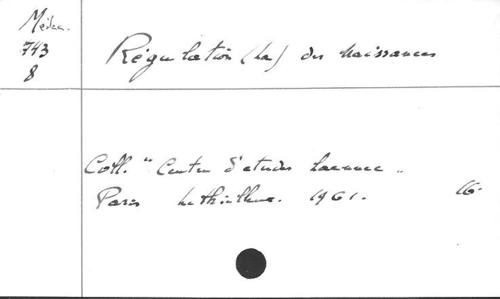 Médec.
743
8
Régulation (La) des Naissances
Coll. "Centre d'etudes Laennec"
Paris Lethielleux. 1961. 16.